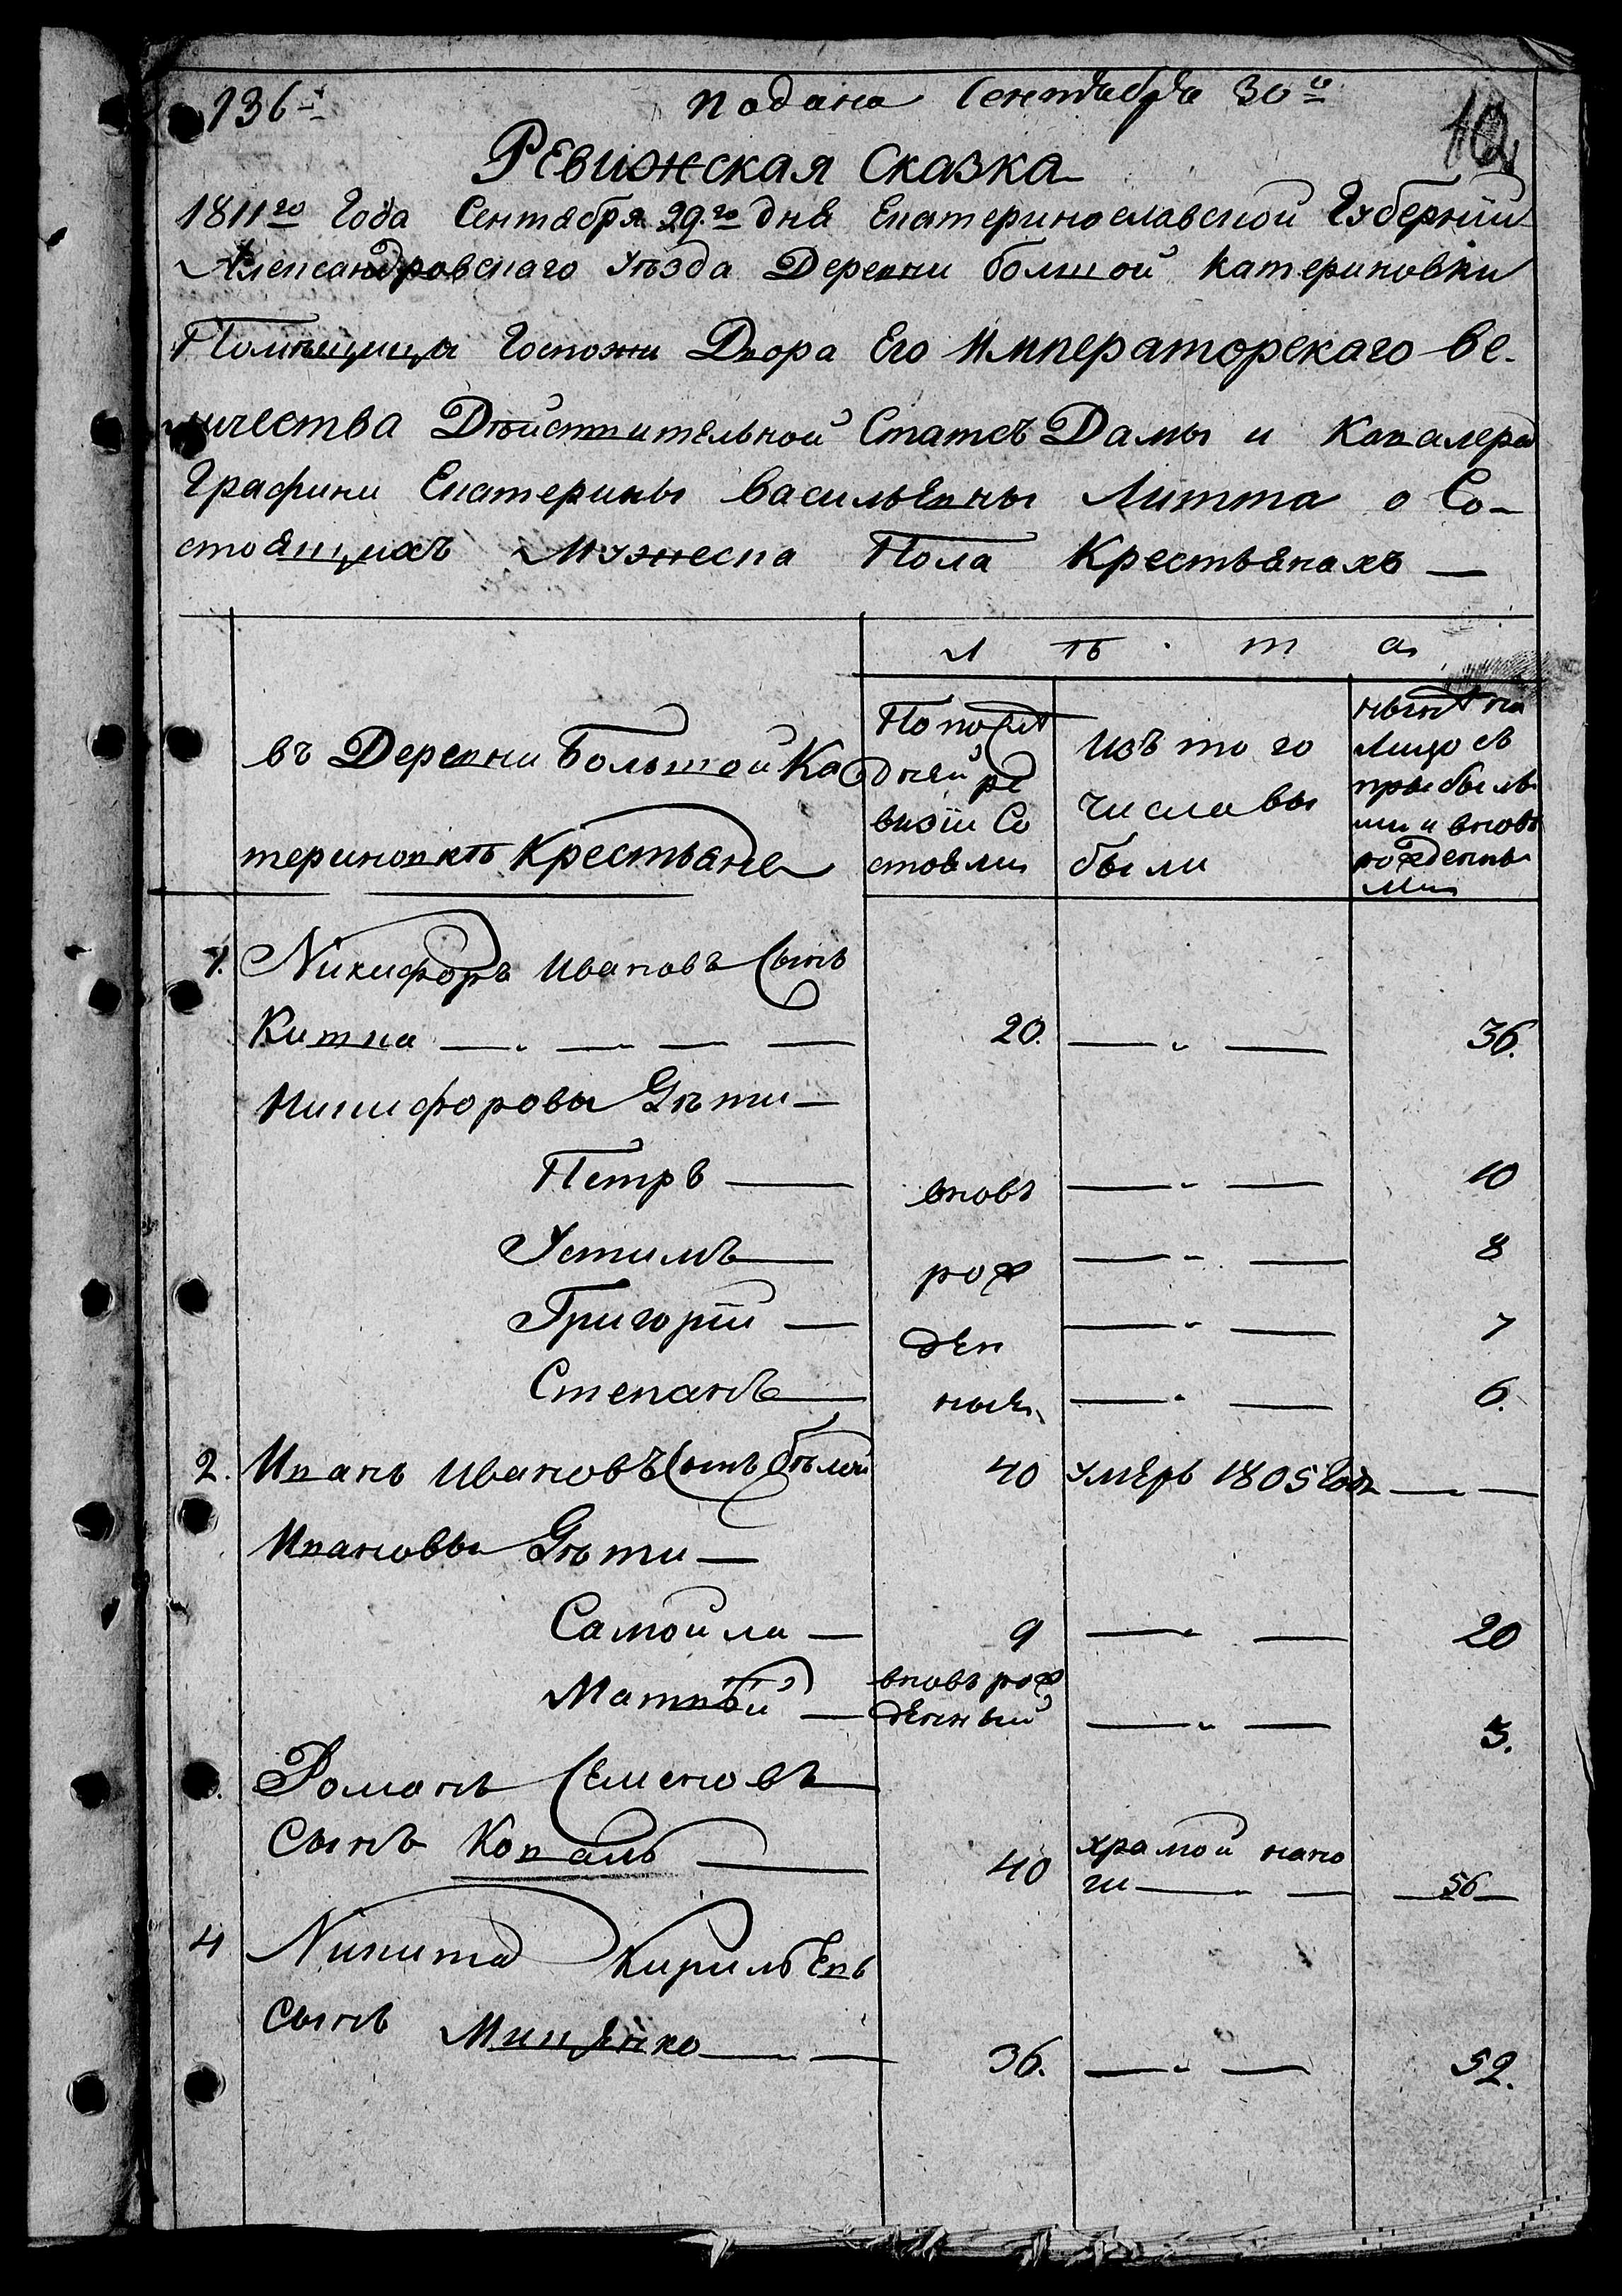 136
подана Сентября 30го
10
Ревижская Сказка
1811го года Сентября 29.го дня Екатеринославской Губернїи
Александровскаго уѣзда Деревни большой катериновки
Помѣщицы Госпожи Двора Его Императорскаго ве-
личества Дѣйствительной Статсъ Дамы и Кавалера
Графини Екатерины васильевны Литта о Со-
стоящихъ Мужеска Пола Крестьянахъ —
лѣта
въ Деревни Большой Ка
териновкѣ крестьяне
По послѣ
дней ре
визїи Со
стояли
Изъ того
числа вы
были
нынѣ на
лицо съ
прыбылы
ми и вновь
рожденны
ми
1. Никифоръ Ивановъ Сынъ
Китка — — — — 20. — „ — 36.
Никифоровы Дѣти —
Петръ — вновь — „ — 10
Устимъ — рож — „ — 8
Григорїй — ден — „ — 7
Степанъ — ные — „ — 6.
2. Иванъ Ивановъ Сынъ бѣлой 40 умеръ 1805 года — —
Ивановы Дѣти —
Самойла — 9 — „ — 20
Матвѣй — вновь рож
денный — „ — 3.
Романъ Семеновъ
сынъ Коваль — 40 храмой нано
ги — „ — 56
4 Никита Кирильевъ
сынъ Мищенко — — 36. — „ — 52.